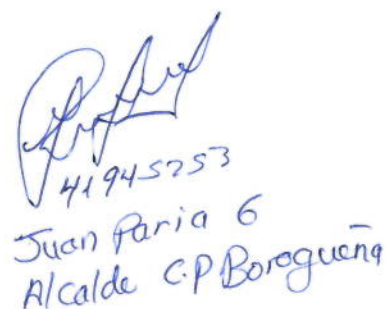 41945253
Juan Paria G
Alcalde C.P Borogueña